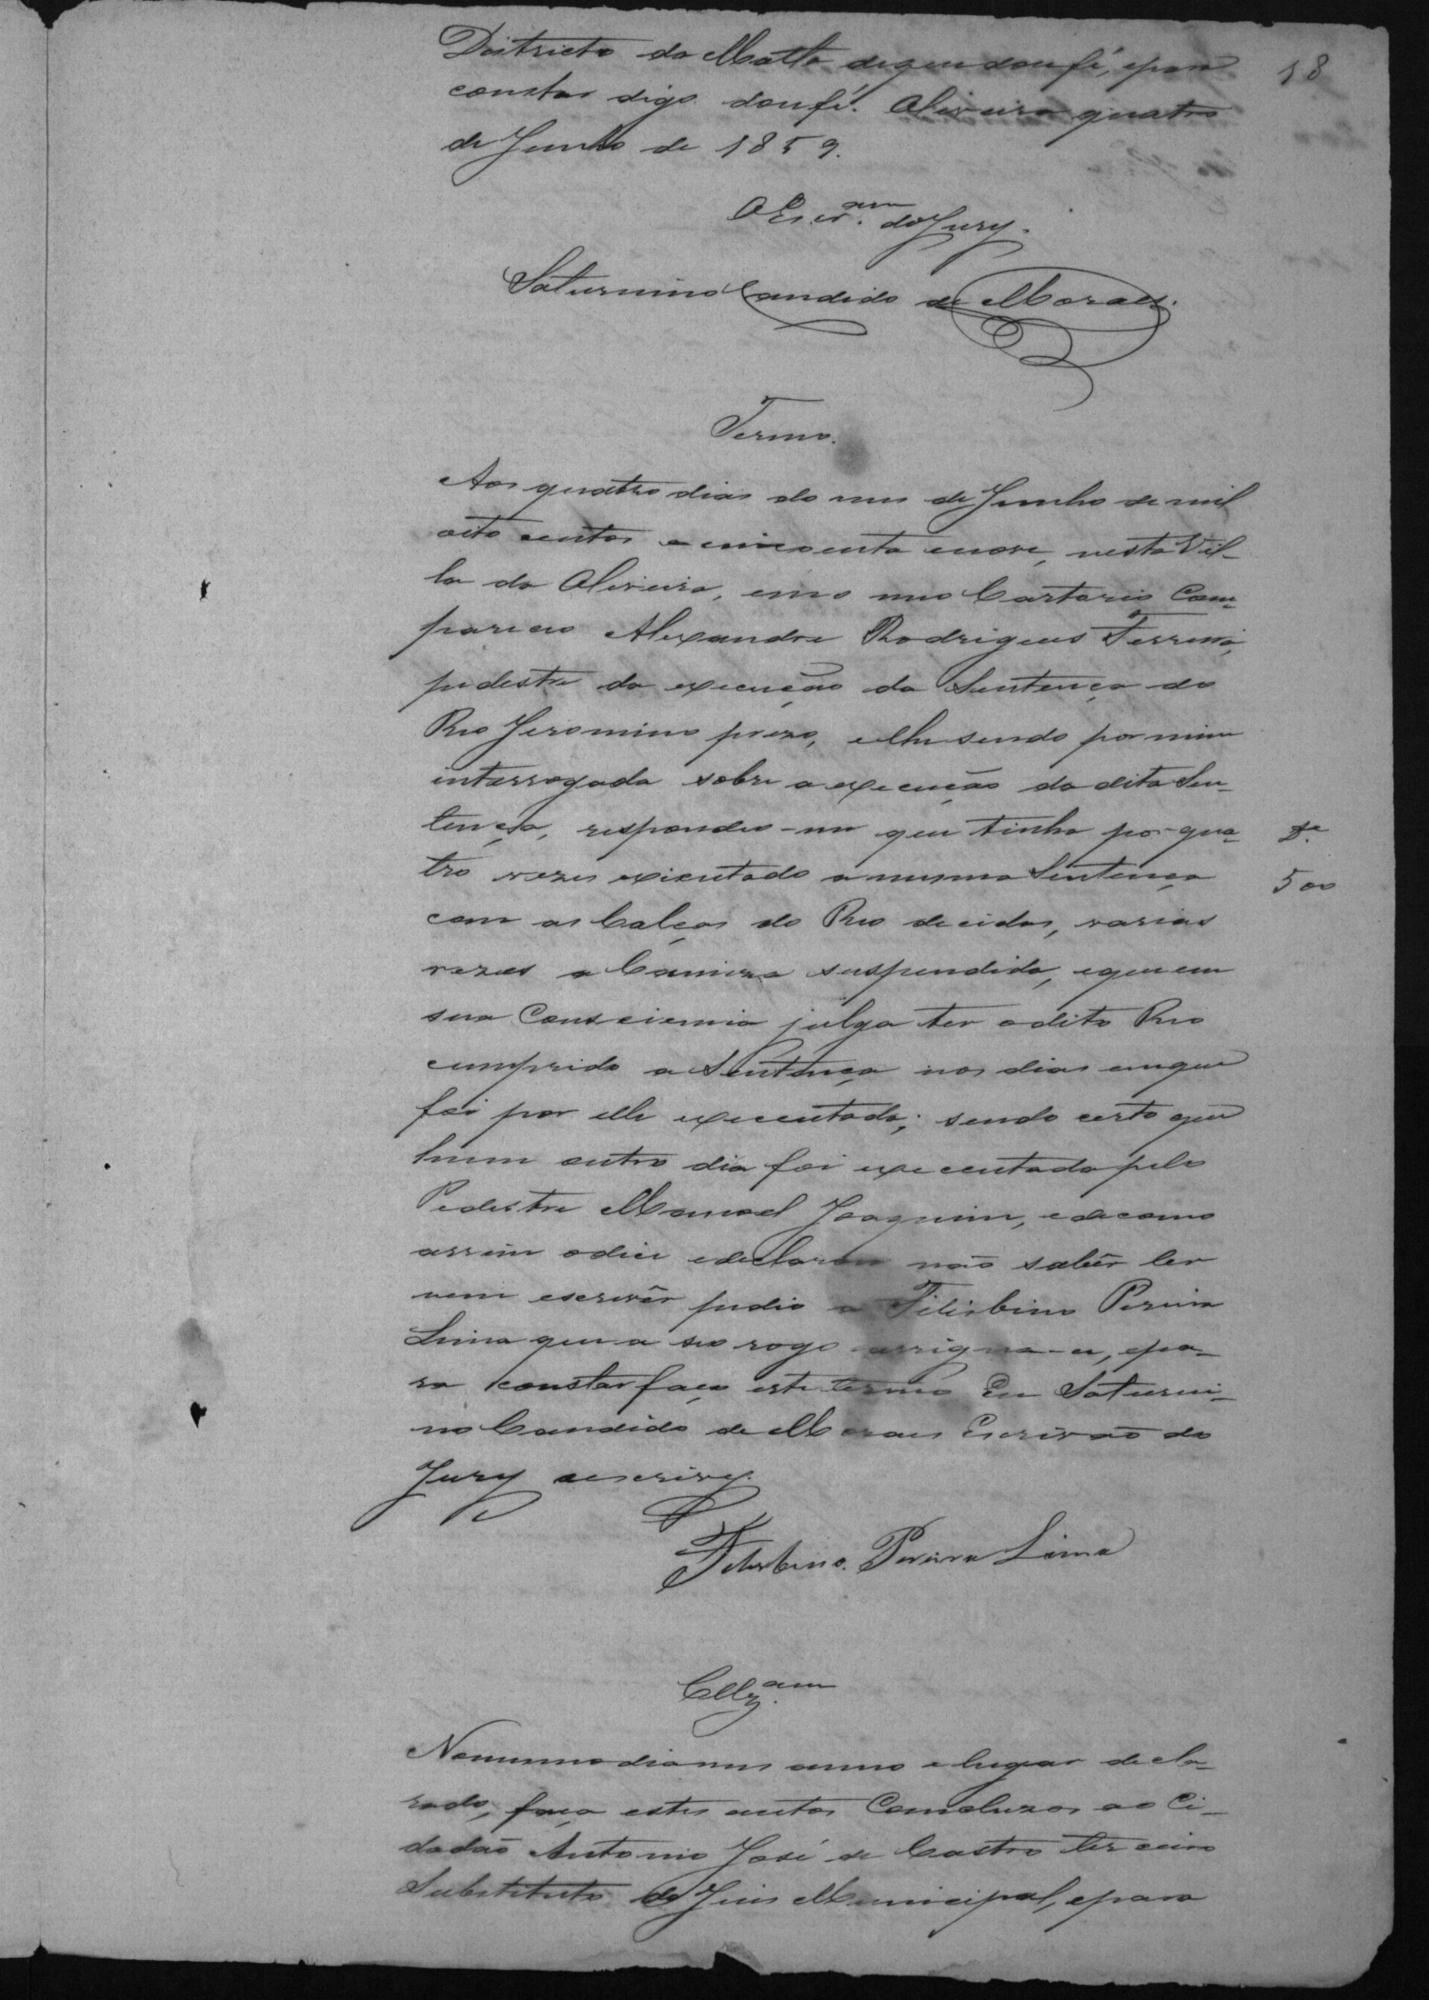 18
Destricto do Matto de que dou fé, e para
constar digo dou fé. Oliveira quatro
de Junho de 1859.
O Escr.am do Jury.
Saturnino Candido de Moraes.
Termo.
Aos quatro dias do mes de Junho de mil
oito centos e cincoenta enove, nesta Vil-
la da Oliveira, em o meo Cartorio Com-
pareceo Alexandre Rodrigues Ferreira,
pedestre da execução da Sentença do
Reo Jeronimo prezo, e lhe sendo por mim
interrogado sobre a execução da dita Sen-
tença, respondeo-me que tinha por qua-
tro vezes exicutado a mesma Sentença
500
com as Calças do Reo decidas, varias
vezes a Camiza suspendida, e que em
sua Consciencia julga ter o dito Reo
cumprido a Sentença nos dias em que
foi por elle executada; sendo certo que
hum outro dia foi executada pelo
Pedestre Manoel Joaquim, e de como
assim o dice e declarou não saber ler
nem escrever pedio a Filisbino Pereira
Lima que a seo rogo assigna-ce, e pa-
ra constar faço este termo Eu Saturni-
no Candido de Moraes Escrivão do
Jury o escrivy.
Felisbino Pereira Lima
Cllz.am
No mesmo dia mes anno e lugar decla-
rado, faço estes autos Concluzos ao Ci-
dadão Antonio José de Castro terceiro
Substituto do Juis Municipal, e para